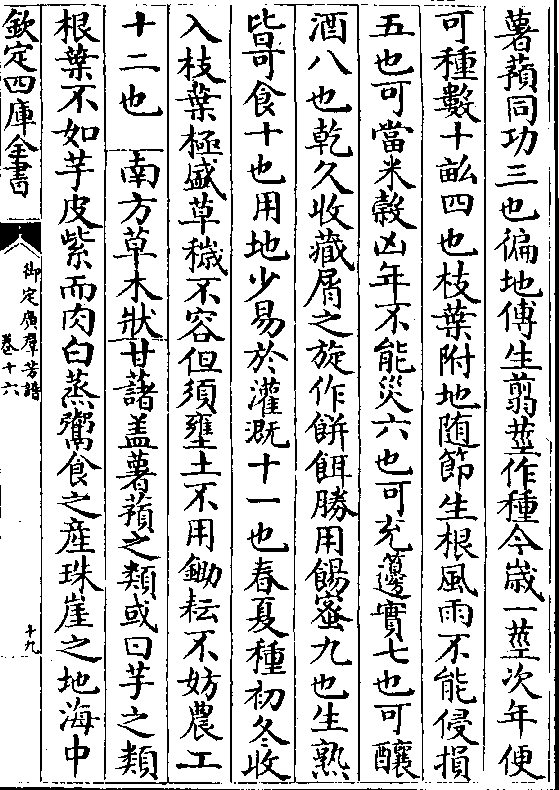 薯蕷同功三也徧地傳生翦莖作種今歲一莖次年便
可種數十畝四也枝葉附地随節生根風雨不能侵損
五也可當米穀凶年不能災六也可充籩實七也可釀
酒八也乾久收藏屑之旋作餅餌勝用餳蜜九也生熟
皆可食十也用地少易於灌溉十一也春夏種初冬收
入枝葉極盛草穢不容但須壅土不用鋤耘不妨農工
十二也　南方草木狀甘藷盖薯蕷之類或曰芋之類
根葉不如芋皮紫而肉白蒸鬻食之産珠崖之地海中
欽定四庫全書
御定廣羣芳譜
卷十六
十九